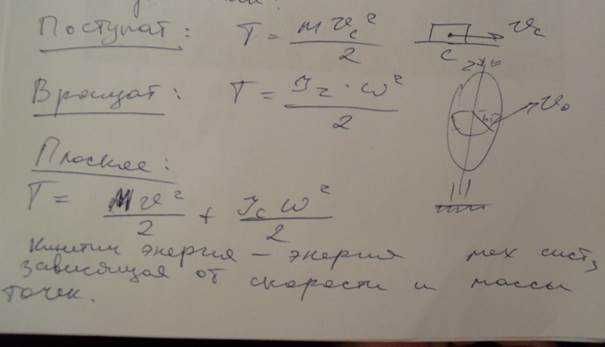 Поступат: T = mv_c²/2 v_c
C
Вращат: T = J_z · ω²/2
Плоское:
T = Mv²/2 + J_c ω²/2
Кинетич энергия – энергия мех сист,
зависящая от скорости и массы
точек.